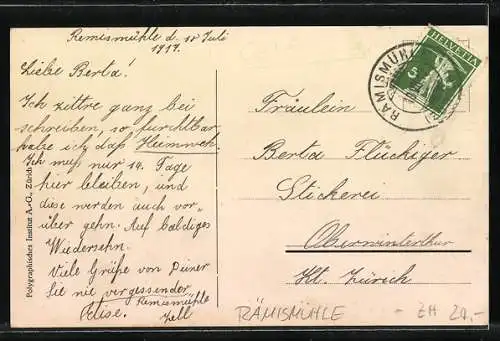 Remismühle d. 10 Juli
1917.
Liebe Berta!
Ich zittre ganz bei
schreiben, so furchtbar
habe ich das Heimweh.
Ich muß nur 14. Tage
hier bleiben, und
diese werden auch vor-
über gehn. Auf baldiges
Wiedersehn.
Viele Grüße von Deiner
Sie nie vergessender
Remismühle
Zell
Fräulein
Berta Flückiger
Stickerei
Oberwinterthur
Kt. Zürich
HELVETIA
5
RÄMISMÜHLE
Polygraphisches Institut A.-G., Zürich
RÄMISMÜHLE
- ZH 20,-